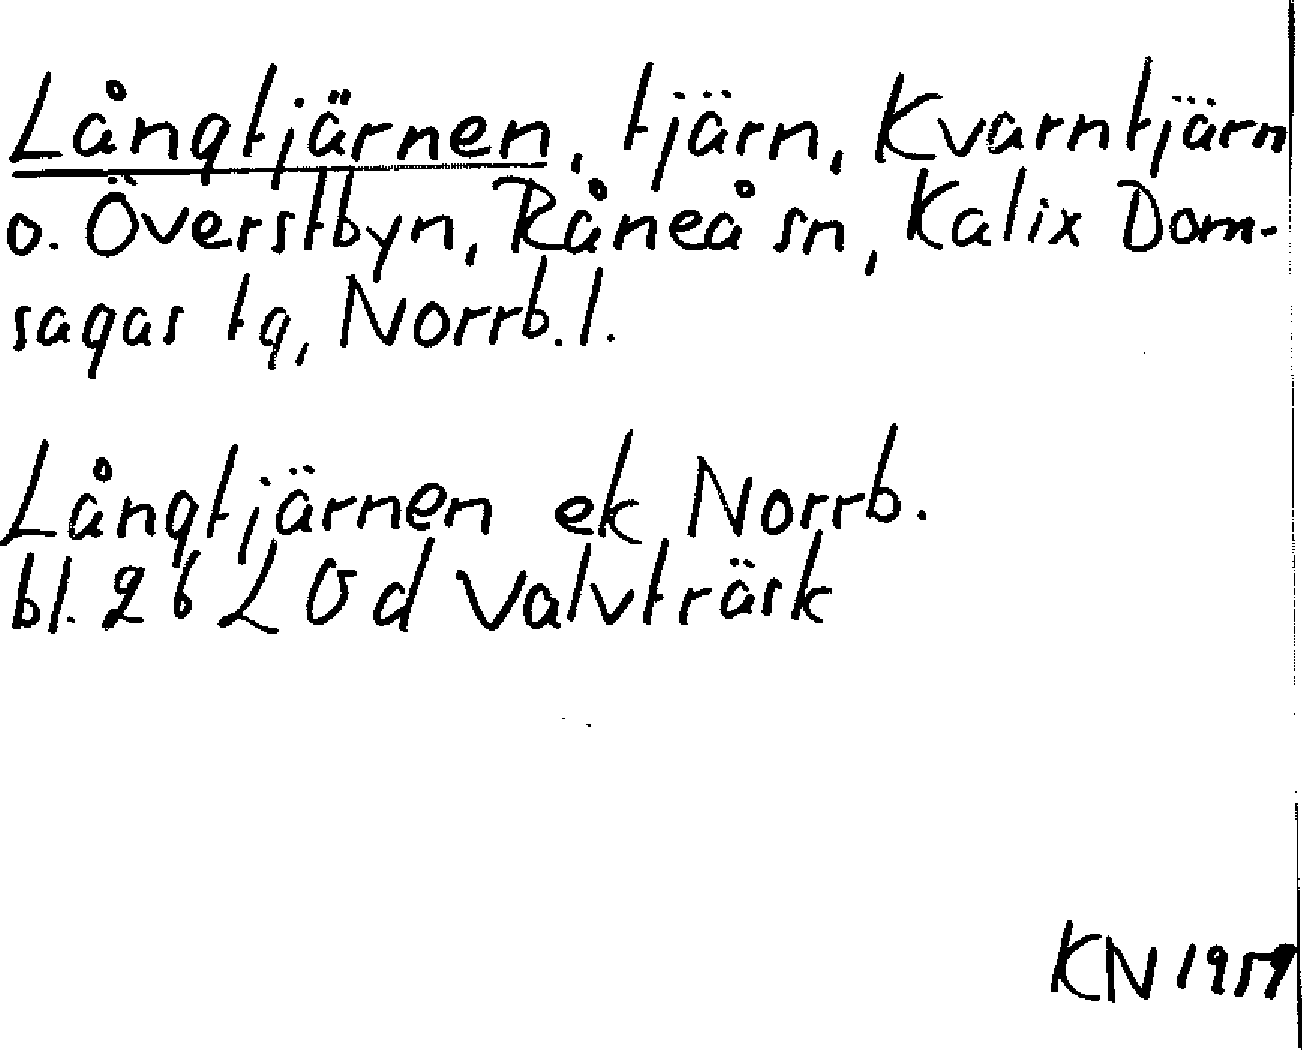 Långtjärnen, tjärn, Kvarntjärn
o. Överstbyn, Råneå sn, Kalix Dom-
sagas tg, Norrb. l.
Långtjärnen ek Norrb.
bl. 26 L 0 d Valvträsk
KN 1959